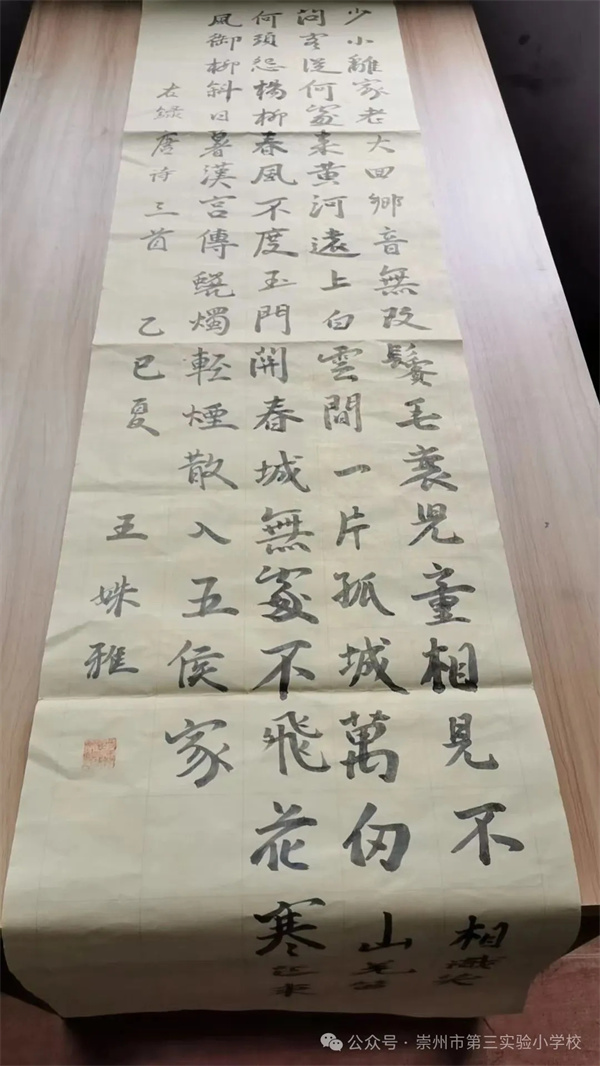 少小離家老大回鄉音無改鬢毛衰兒童相見不相識笑
問客從何處來黃河遠上白雲間一片孤城萬仞山羌笛
何須怨楊柳春風不度玉門開春城無處不飛花寒食東
風御柳斜日暮漢宮傳蠟燭輕煙散入五侯家
右錄唐詩三首 乙巳夏 王姝雅
公众号·崇州市第三实验小学校